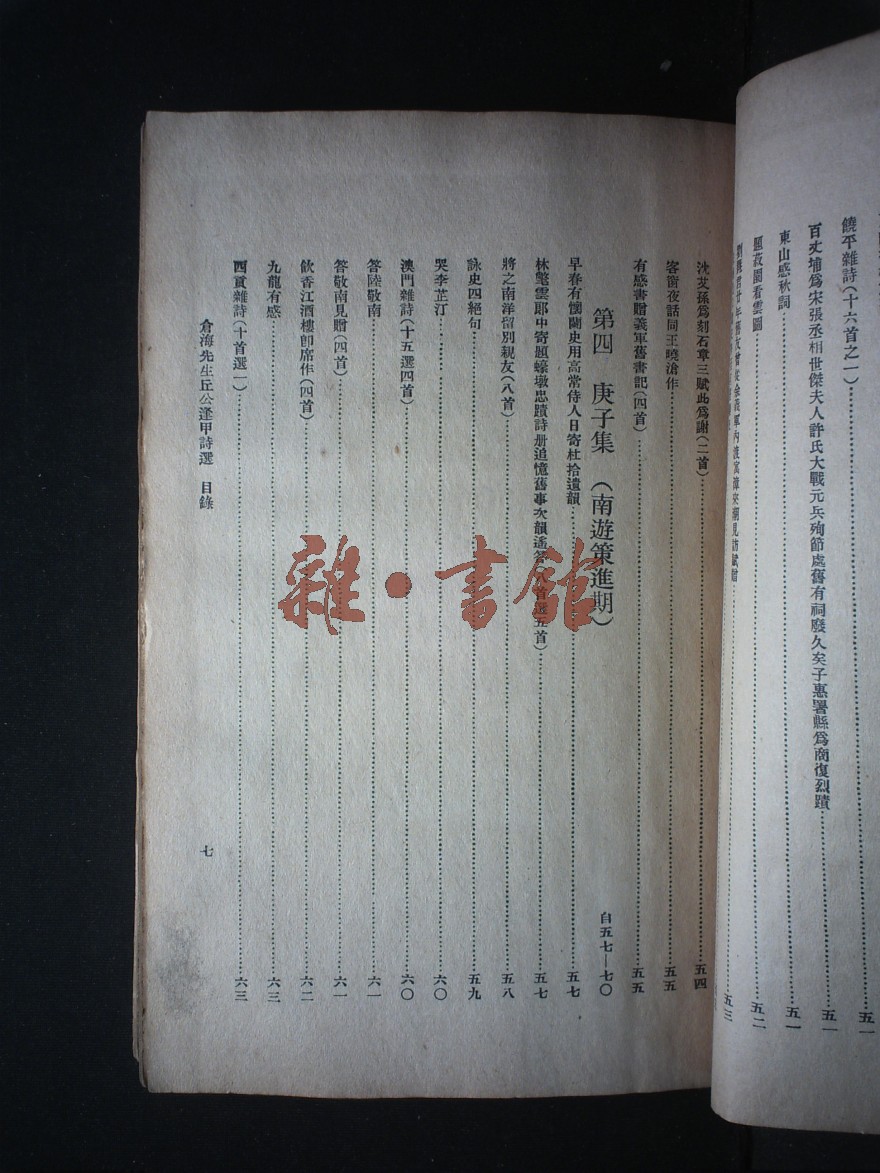 饒平雜詩(十六首之一)……五一
百丈埔爲宋張丞相世傑夫人許氏大戰元兵殉節處舊有祠廢久矣子惠署縣爲商復烈蹟……五一
東山感秋詞……五一
題菽園看雲圖……五二
五三
沈艾孫爲刻石章三賦此爲謝(二首)……五四
客窗夜話同王曉滄作……五五
有感書贈義軍舊書記(四首)……五五
第四 庚子集 (南遊策進期) 自五七—七〇
早春有懷蘭史用高常侍人日寄杜拾遺韻……五七
林氅雲郎中寄題蠔墩忠蹟詩册追憶舊事次韻遙答(八首選五首)……五七
將之南洋留別親友(八首)……五八
詠史四絕句……五九
哭李芷汀……六〇
澳門雜詩(十五選四首)……六〇
答陸敬南……六一
答敬南見贈(四首)……六一
飲香江酒樓卽席作(四首)……六二
九龍有感……六三
西貢雜詩(十首選一)……六三
倉海先生丘公逢甲詩選 目錄
七
雜·書館